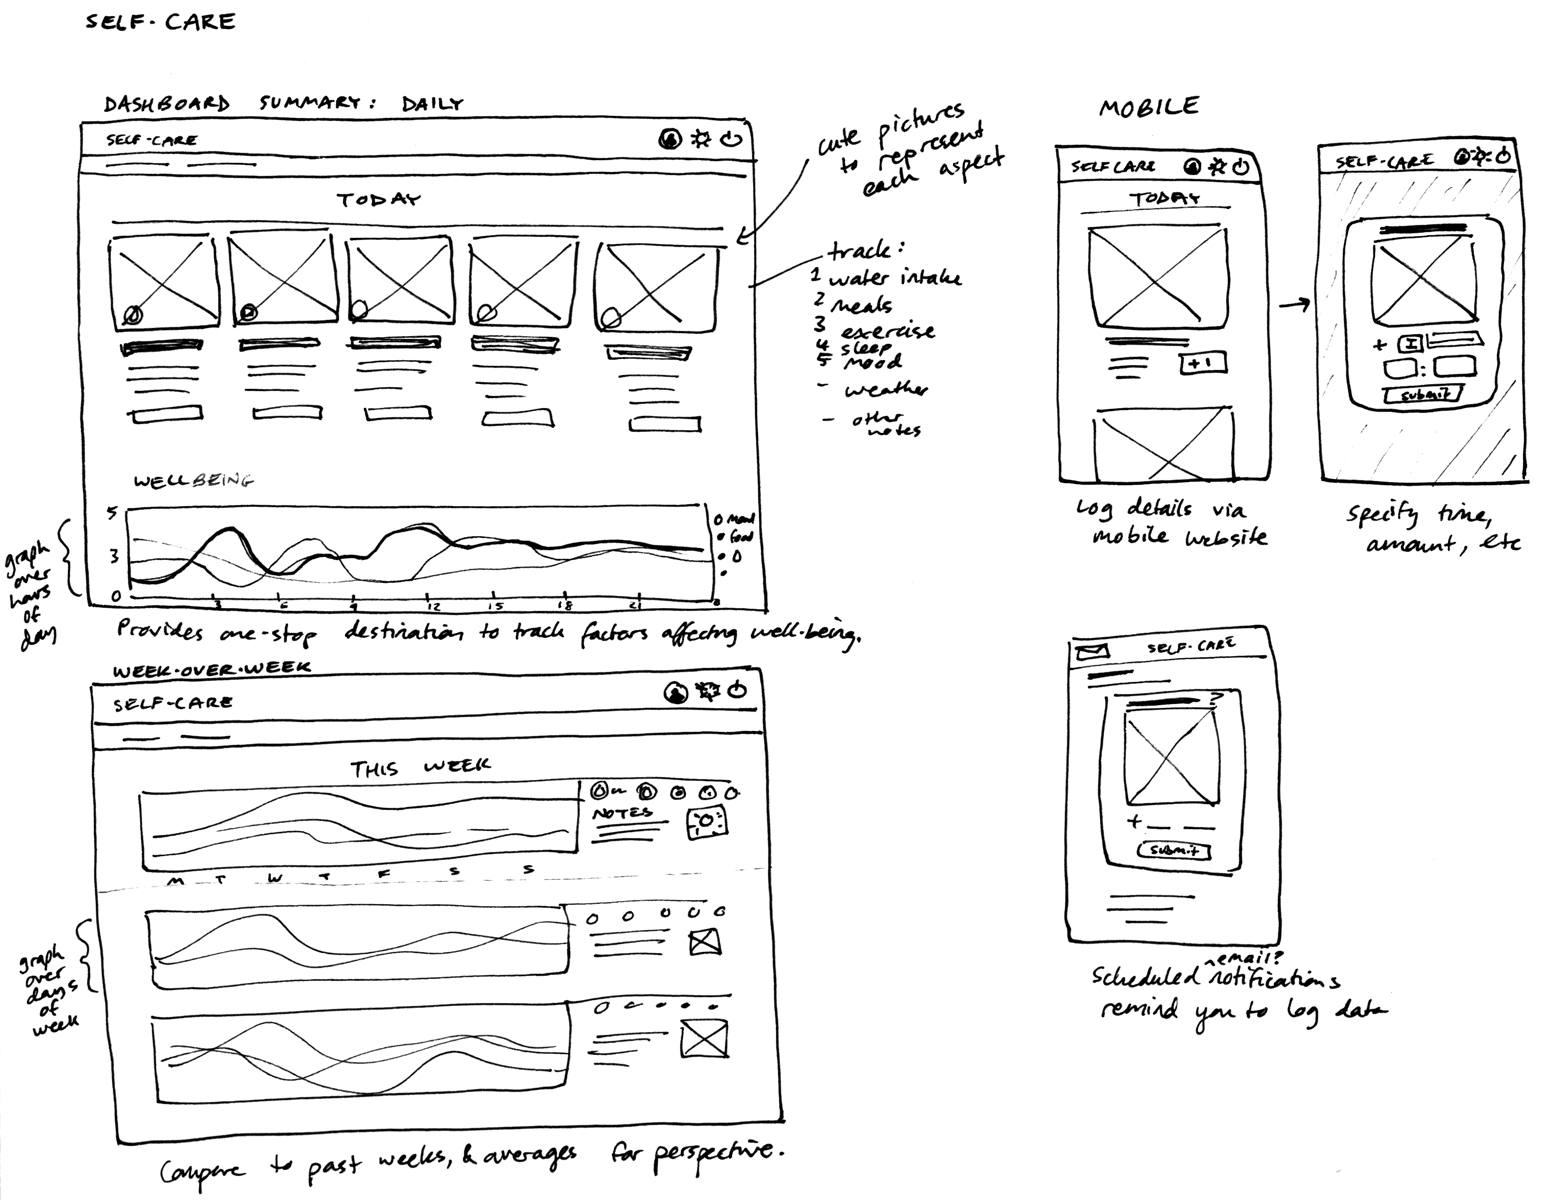 SELF-CARE
DASHBOARD SUMMARY: DAILY
SELF-CARE
TODAY
cute pictures
to represent
each aspect
track:
1 water intake
2 meals
3 exercise
4 sleep
5 mood
- weather
- other
notes
WELLBEING
5
3
0
3
6
9
12
15
18
21
mood
food
graph
over
hours
of
day
Provides one-stop destination to track factors affecting well-being.
WEEK-OVER-WEEK
SELF-CARE
THIS WEEK
NOTES
M T W T F S S
graph
over
days
of
week
Compare to past weeks, & averages for perspective.
MOBILE
SELFCARE
TODAY
+1
Log details via
mobile website
SELF-CARE
+ I
:
submit
Specify time,
amount, etc
SELF-CARE
?
+
submit
email?
Scheduled notifications
remind you to log data